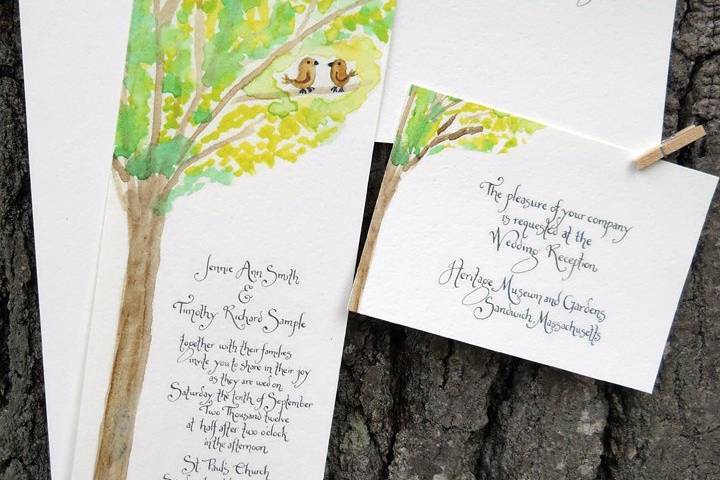 Jennie Ann Smith
&
Timothy Richard Sample
together with their families
invite you to share in their joy
as they are wed on
Saturday, the tenth of September
Two Thousand twelve
at half after two o'clock
in the afternoon
St Paul's Church
The pleasure of your company
is requested at the
Wedding Reception
Heritage Museum and Gardens
Sandwich, Massachusetts